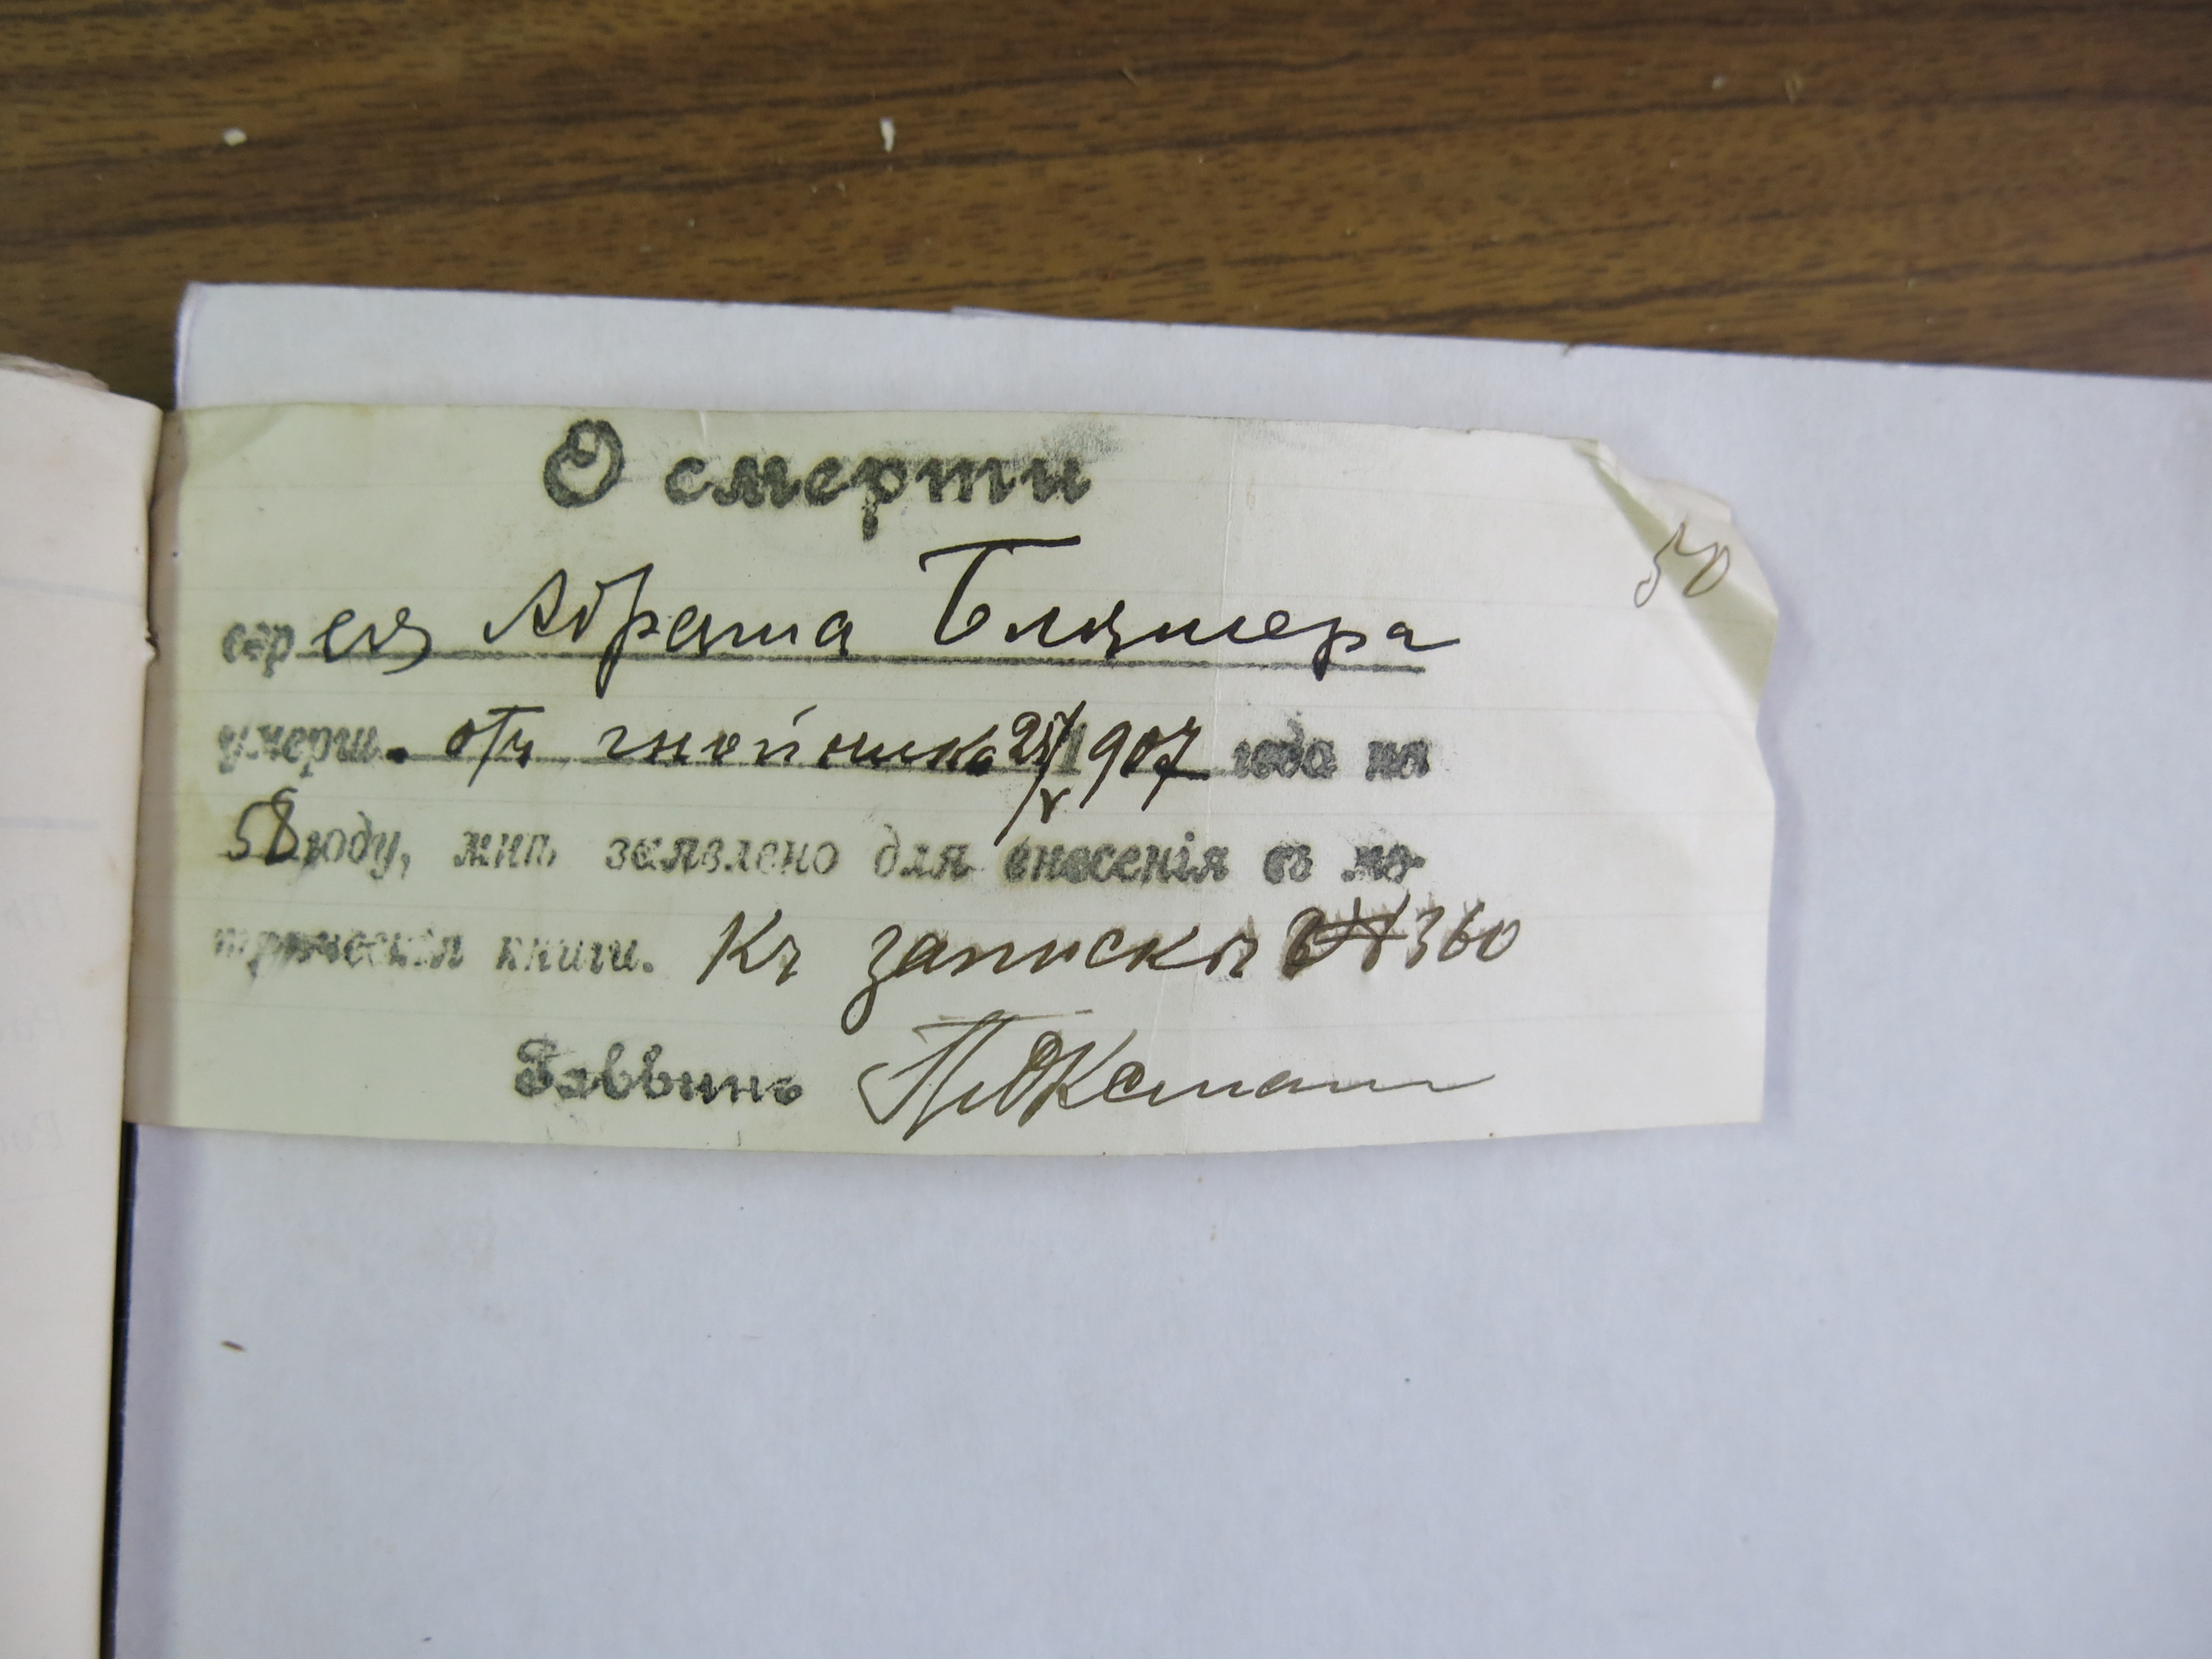 О смерти
50
евр ея Абрама Бляхера
умерш. отъ гнойника 25/V 1907 года на
58 году, мнѣ заявлено для внесенія въ ме-
трическія книги. Къ запискѣ № 360
Раввинъ